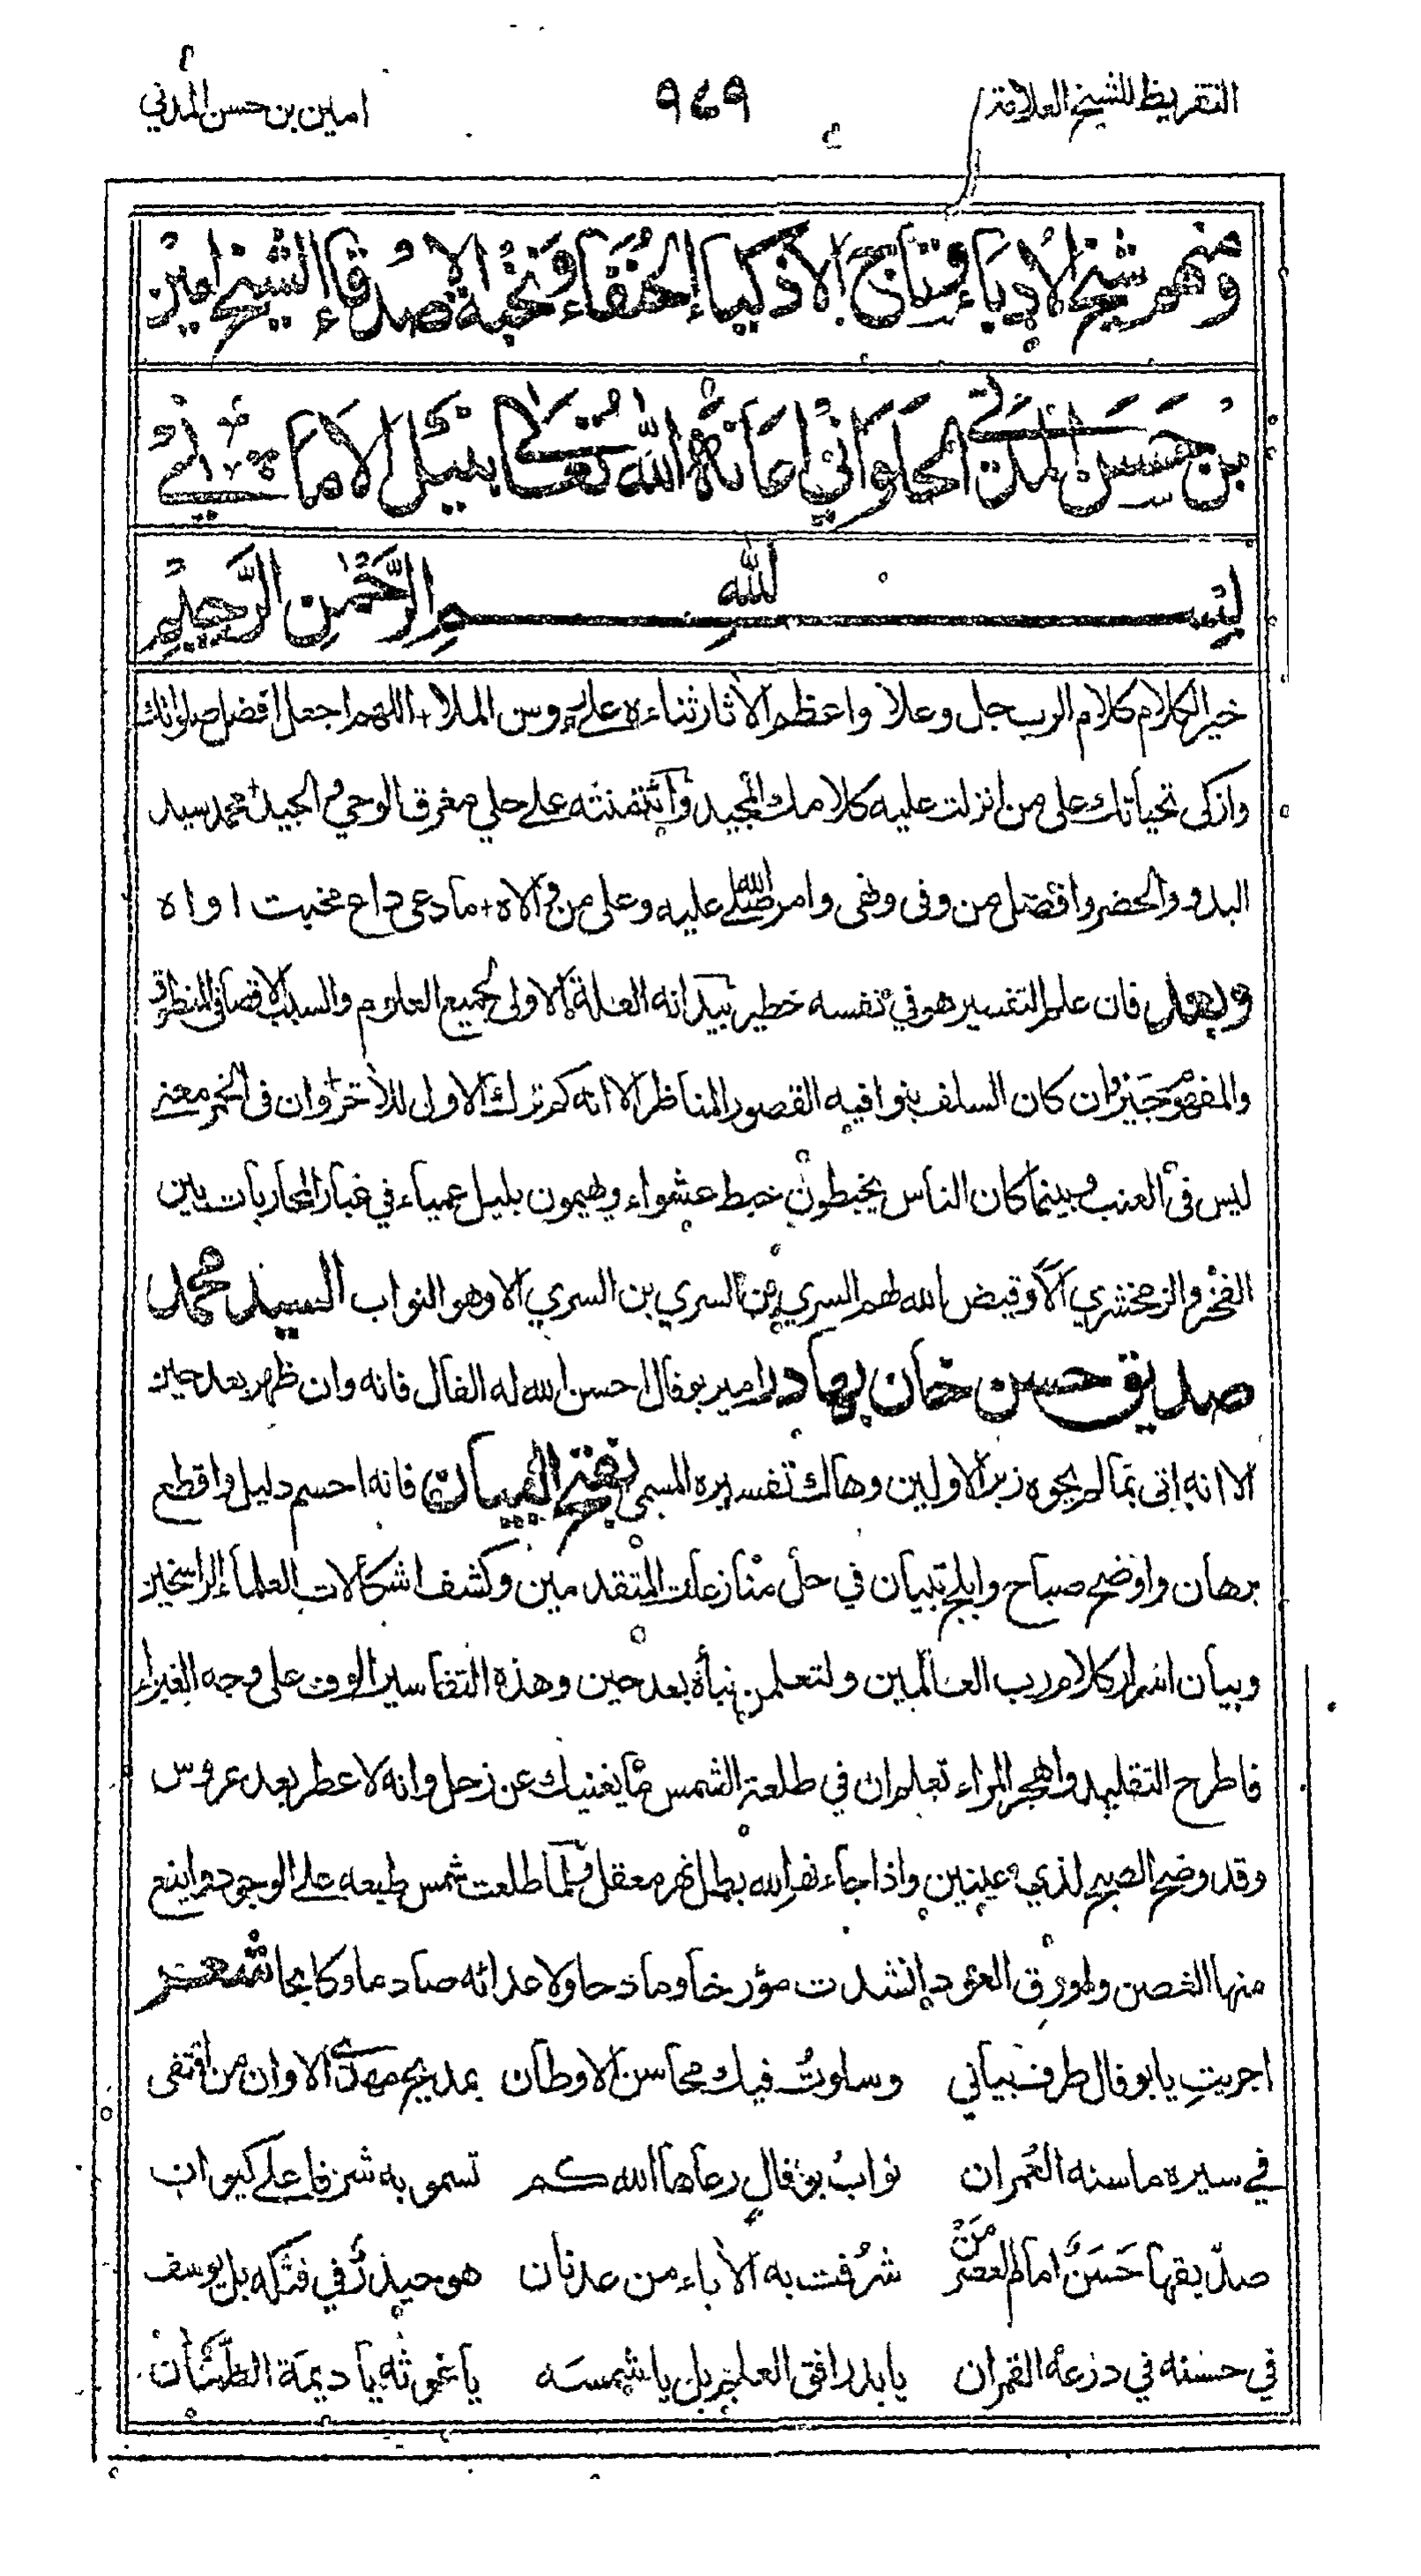 التقريظ للشيخ العلامة ٩٤٩ امين بن حسن المدني
ومنهم شيخ الادباء وتاج الاذكياء الحنفاء ونخبة الاصدقاء الشيخ امين
بن حسن المدني الحلواني اعانه الله تعالى بنيل الاماني
بسم الله الرحمن الرحيم
خير الكلام كلام الرب جل وعلا واعظم الاثار ثناءه على رؤس الملا اللهم اجعل افضل صلواتك
وازكى تحياتك على من انزلت عليه كلامك المجيد وائتمنته على حلي مفرق الوحي والجيد محمد سيد
البدو والحضر وافضل من وفى ونهى وامر صلى الله عليه وعلى من والاه ما دعى داع مخبت اواه
وبعد فان علم التفسير هو في نفسه خطير بيد انه العلة الاولى لجميع العلوم والسبب الاقصا في المنطوق
والمفهوم جيز وان كان السلف بنوا فيه القصور المناظر الا انه كم ترك الاول للآخر وان في الخمر معنى
ليس في العنب وبينما كان الناس يخبطون خبط عشواء ويهيمون بليل عمياء في غبار المحاربات بين
الفخر والزمخشري الا وقيض الله لهم السري بن السري بن السري الا وهو النواب السيد محمد
صديق حسن خان بهادر امير بوفال احسن الله له الفال فانه وان ظهر بعد حين
الا انه اتى بما لم يحوه زبر الاولين وهاك تفسيره المسمى بفتح البيان فانه احسم دليل واقطع
برهان واوضح صباح وابلج تبيان في حل منازعات المتقدمين وكشف اشكالات العلماء الراسخين
وبيان اسرار كلام رب العالمين ولتعلمن نبأه بعد حين وهذه التفاسير الوف على وجه الغبراء
فاطرح التقليد واهجر المراء تعلم ان في طلعة الشمس ما يغنيك عن زحل وانه لا عطر بعد عروس
وقد وضح الصبح لذي عينين واذا جاء نهر الله بطل نهر معقل فلما طلعت شمس طبعه على الوجود واينع
منها الغصن واورق العود انشدت مؤرخا ومادحا ولاعدائه صادما وكابحا شعر
اجريت يا بوفال طرف بياني وسلوت فيك محاسن الاوطان بمديح مهدي الاوان من اقتفى
في سيره ما سنه العمران نواب بوفال رعاها الله كم تسمو به شرفا على كيوان
صديقها حسن امام العصر من شرفت به الآباء من عدنان هو حيدر في فتكه بل يوسف
في حسنه في درعه القمران يا بدر افق العلم بل يا شمسه يا غوثه يا ديمة الظمآن